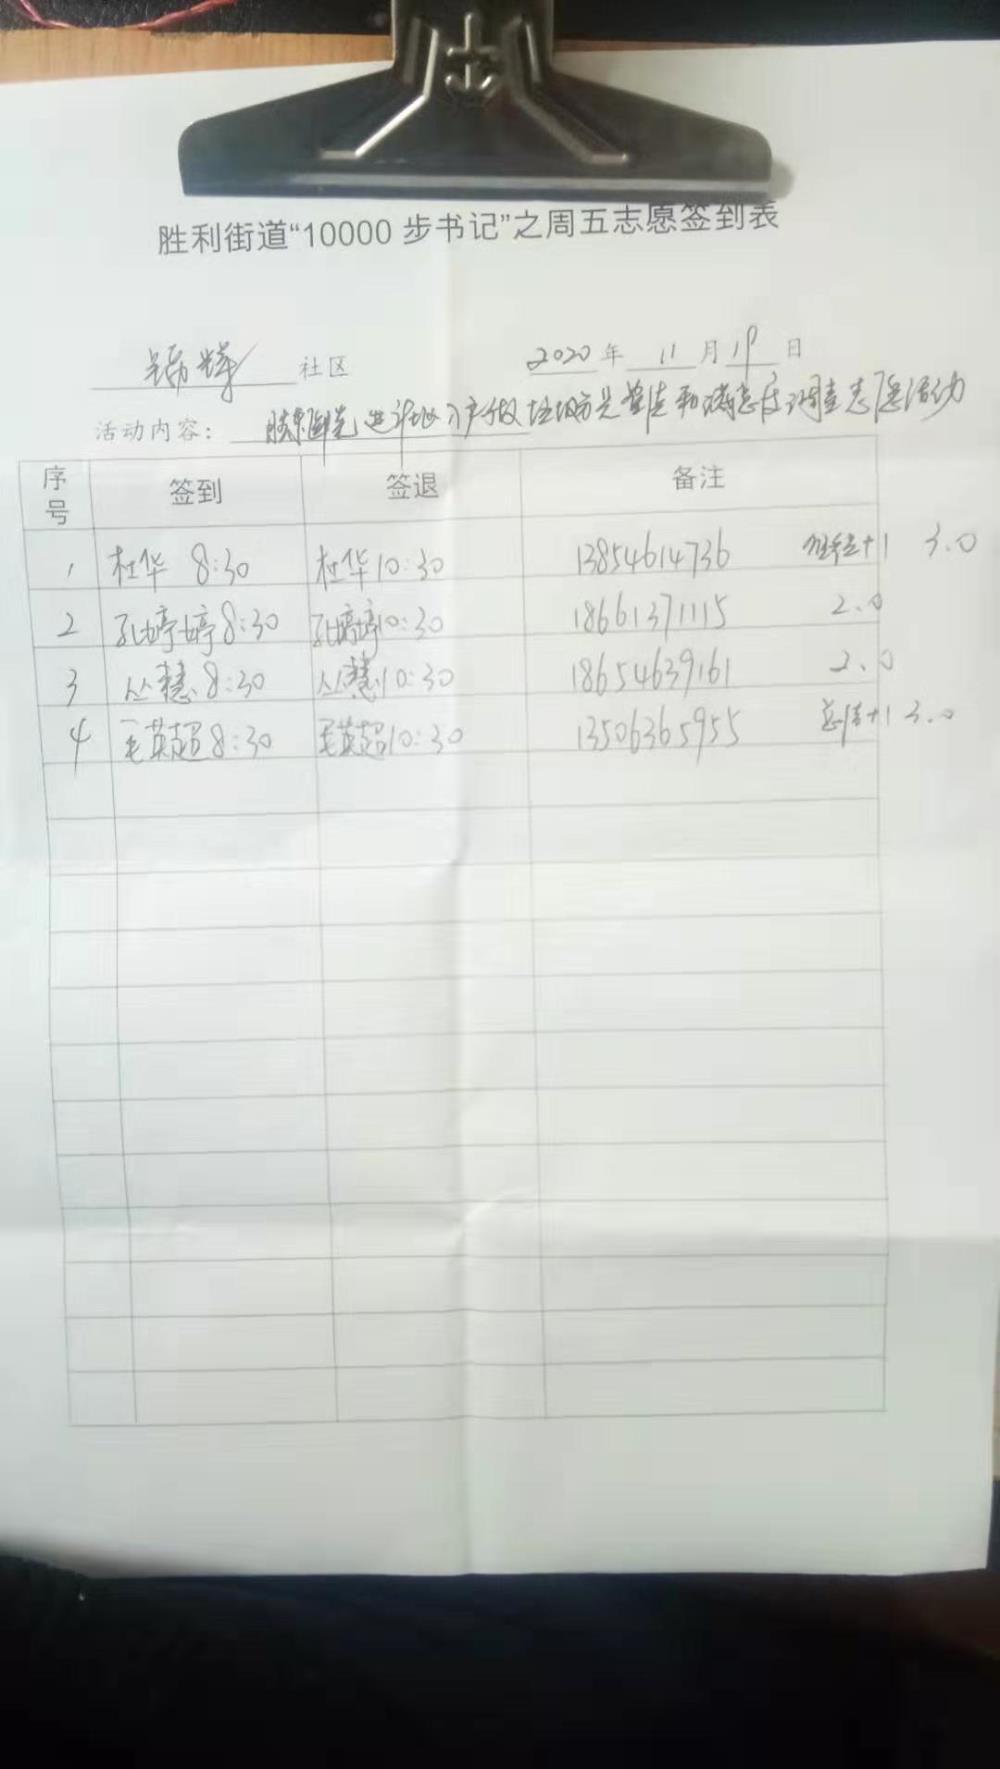 胜利街道“10000步书记”之周五志愿签到表
社区 2020年 11月19日
活动内容: 入户做垃圾分类宣传和满意度调查志愿活动
序号 签到 签退 备注
1 杜华 8:30 杜华10:30 13854614736 +1 3.0
2 孔婷婷8:30 孔婷婷10:30 18661371115 2.0
3 丛慧8:30 丛慧10:30 18654639161 2.0
4 毛英超8:30 毛英超10:30 13506365955 总结+1 3.0